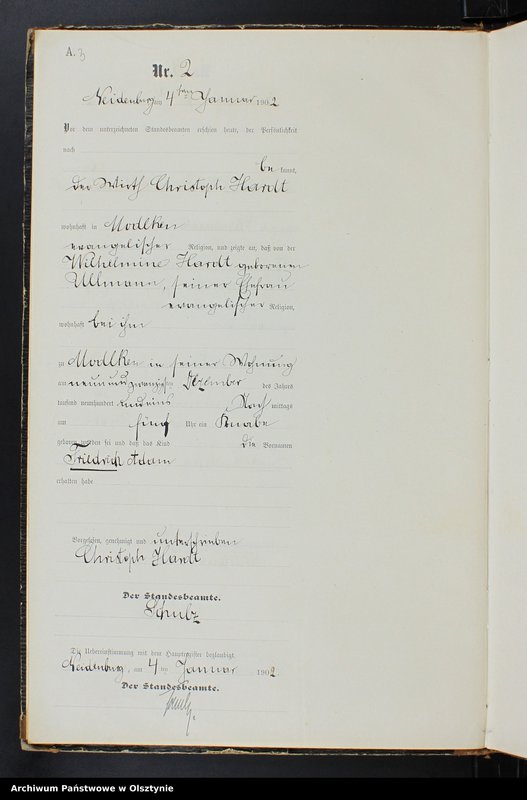 A. 3
Nr. 2
Neidenburg am 4ten Januar 1902
Vor dem unterzeichneten Standesbeamten erschien heute, der Persönlichkeit
nach
be kannt,
der Wirth Christoph Hardt
wohnhaft in Modlken
evangelischer Religion, und zeigte an, daß von der
Wilhelmine Hardt geborenen
Ullmann, seiner Ehefrau
evangelischer Religion,
wohnhaft bei ihm
zu Modlken in seiner Wohnung
am neunundzwanzigsten Dezember des Jahres
tausend neunhundert undeins Nach mittags
um fünf Uhr ein Knabe
geboren worden sei und daß das Kind die Vornamen
Friedrich Adam
erhalten habe
Vorgelesen, genehmigt und unterschrieben
Christoph Hardt
Der Standesbeamte.
Schulz
Die Uebereinstimmung mit dem Hauptregister beglaubigt
Neidenburg, am 4 ten Januar 1902
Der Standesbeamte.
Schulz.
Archiwum Państwowe w Olsztynie